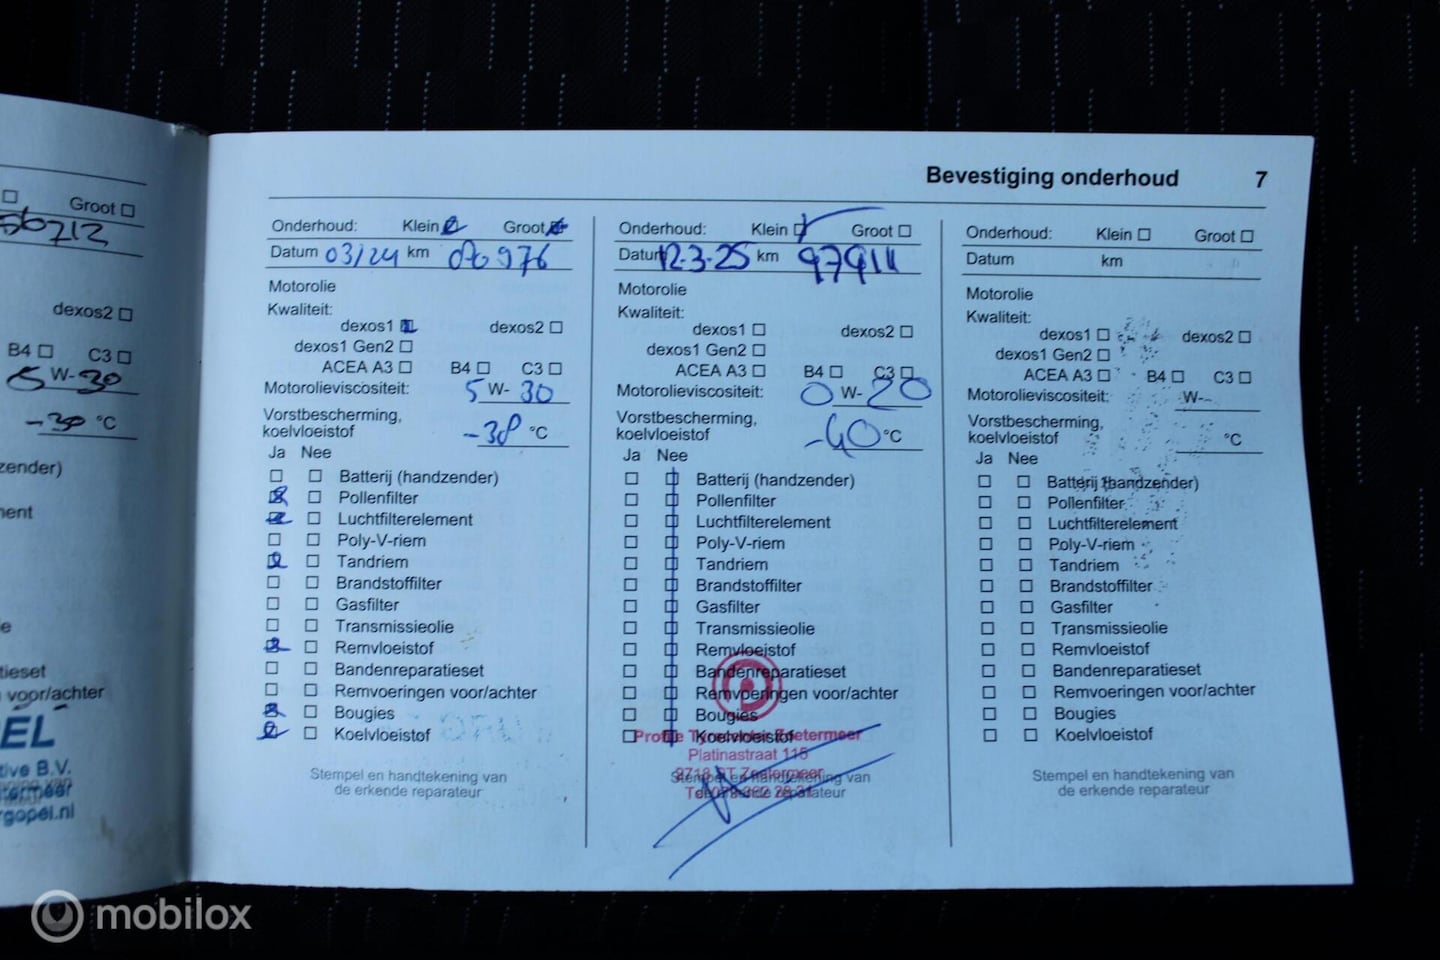 Groot
56712
dexos2
B4 C3
5 W-30
-30 °C
zender)
ment
tieset
voor/achter
EL
tive B.V.
etermeer
rgopel.nl
Bevestiging onderhoud 7
Onderhoud: Klein Groot
Datum 03/24 km 80976
Motorolie
Kwaliteit:
dexos1 dexos2
dexos1 Gen2
ACEA A3 B4 C3
Motorolieviscositeit: 5 W- 30
Vorstbescherming,
koelvloeistof -38 °C
Ja Nee
Batterij (handzender)
Pollenfilter
Luchtfilterelement
Poly-V-riem
Tandriem
Brandstoffilter
Gasfilter
Transmissieolie
Remvloeistof
Bandenreparatieset
Remvoeringen voor/achter
Bougies
Koelvloeistof
Stempel en handtekening van
de erkende reparateur
Onderhoud: Klein Groot
Datum 12-3-25 km 97911
Motorolie
Kwaliteit:
dexos1 dexos2
dexos1 Gen2
ACEA A3 B4 C3
Motorolieviscositeit: 0 W- 20
Vorstbescherming,
koelvloeistof -40 °C
Ja Nee
Batterij (handzender)
Pollenfilter
Luchtfilterelement
Poly-V-riem
Tandriem
Brandstoffilter
Gasfilter
Transmissieolie
Remvloeistof
Bandenreparatieset
Remvoeringen voor/achter
Bougies
Koelvloeistof
Zoetermeer
Platinastraat 115
Stempel en handtekening van
de erkende reparateur
Onderhoud: Klein Groot
Datum km
Motorolie
Kwaliteit:
dexos1 dexos2
dexos1 Gen2
ACEA A3 B4 C3
Motorolieviscositeit: W-
Vorstbescherming,
koelvloeistof °C
Ja Nee
Batterij (handzender)
Pollenfilter
Luchtfilterelement
Poly-V-riem
Tandriem
Brandstoffilter
Gasfilter
Transmissieolie
Remvloeistof
Bandenreparatieset
Remvoeringen voor/achter
Bougies
Koelvloeistof
Stempel en handtekening van
de erkende reparateur
mobilox